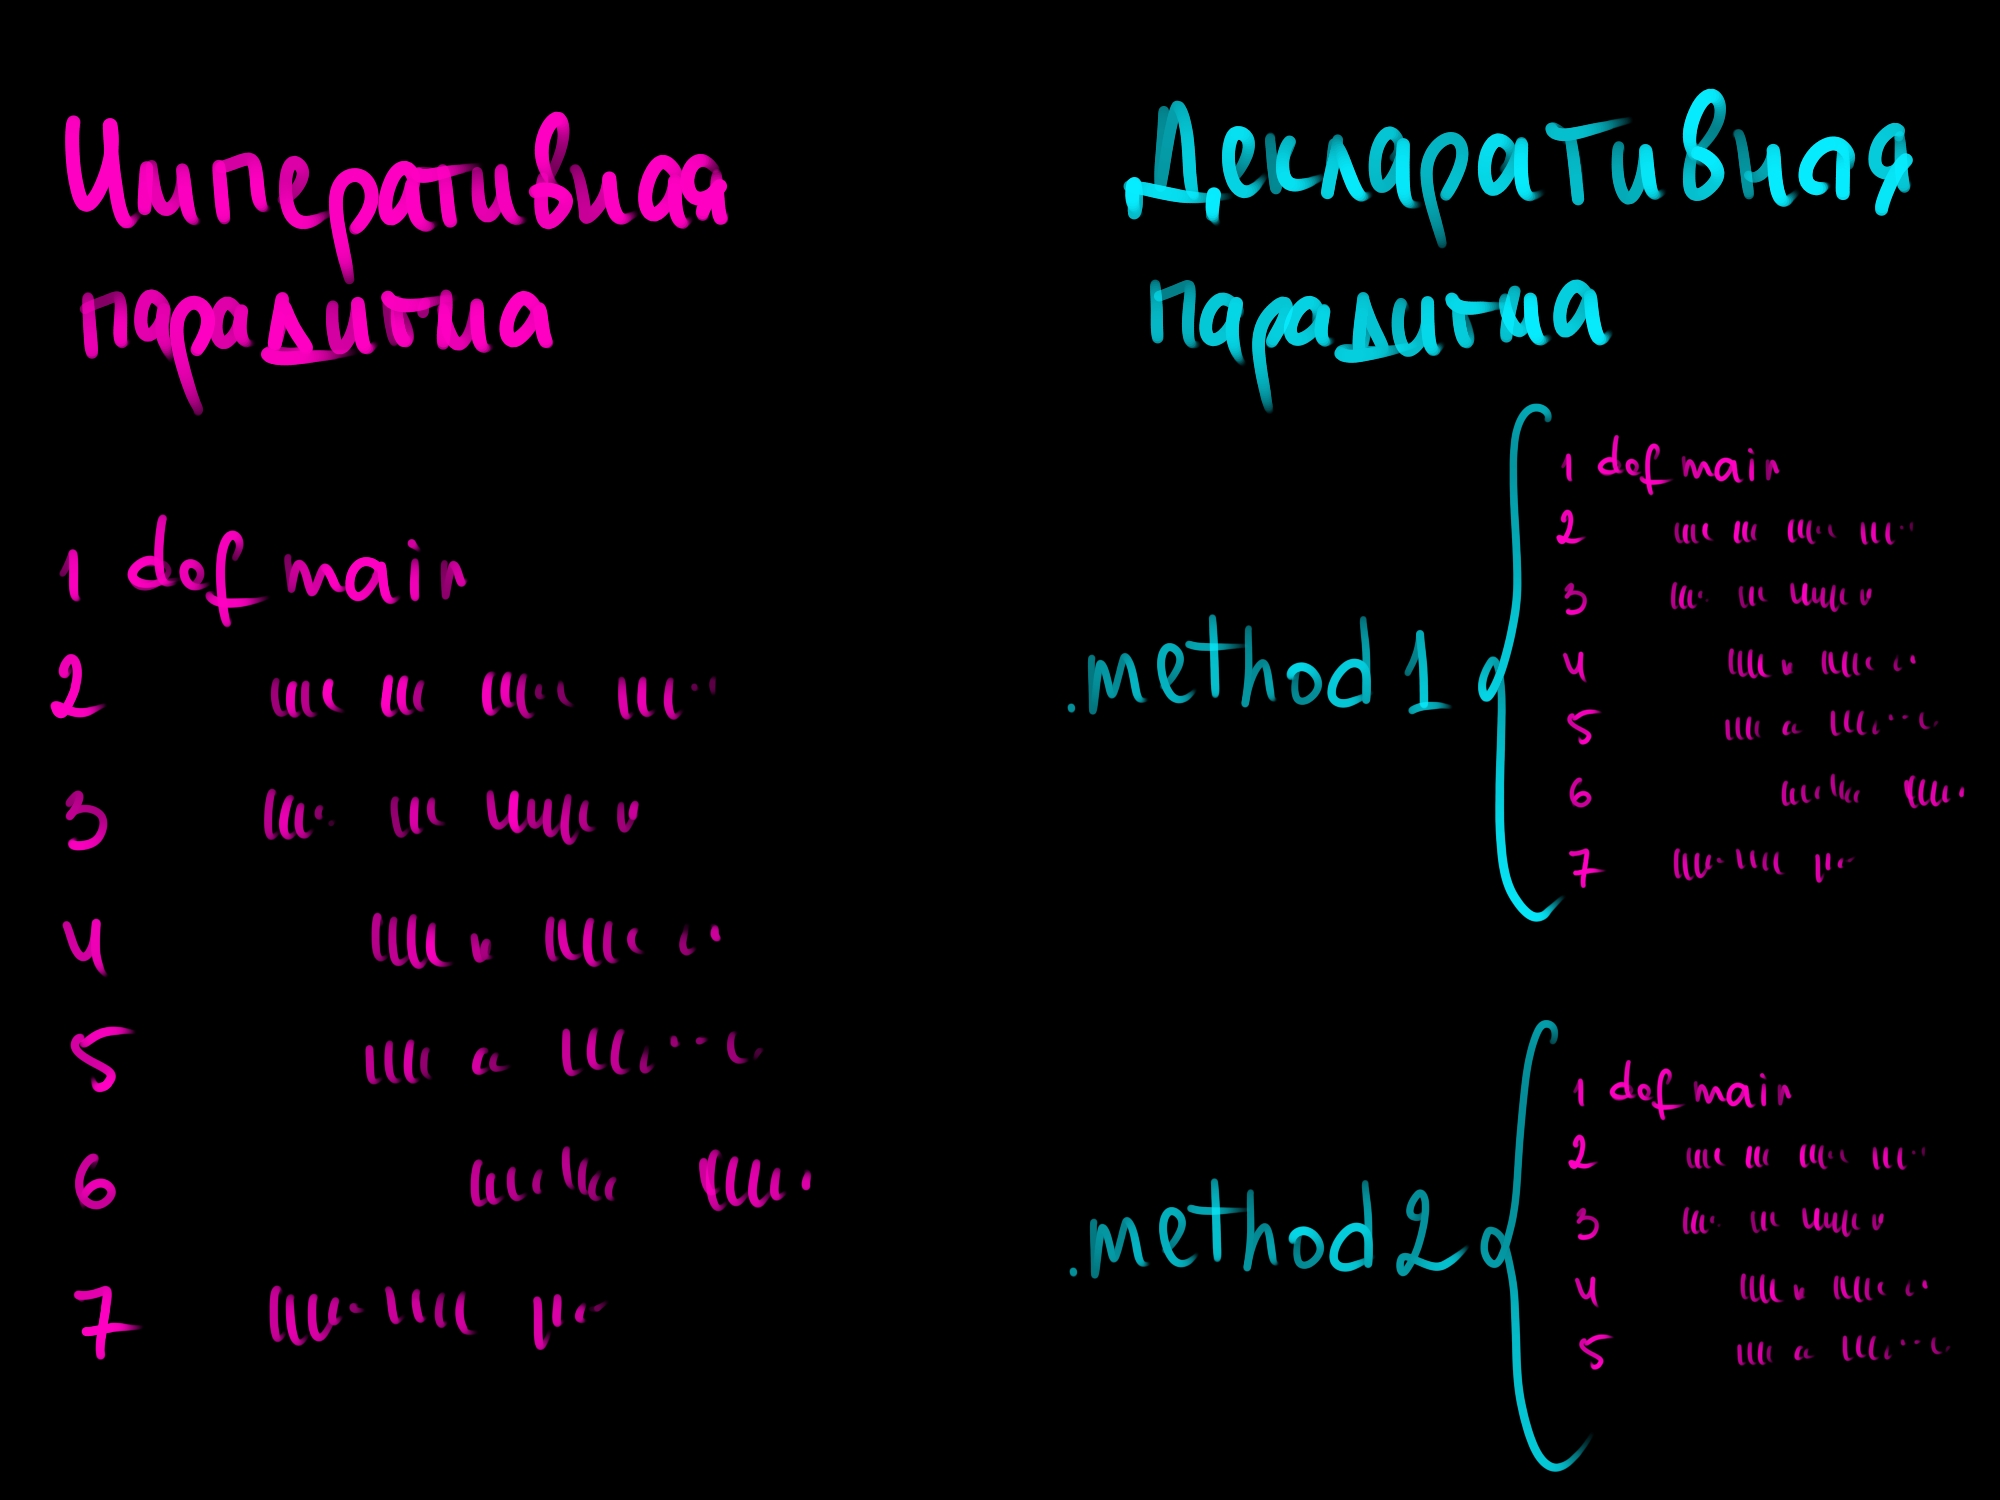 Императивная
парадигма
1 def main
2
3
4
5
6
7
Декларативная
парадигма
.method 1
1 def main
2
3
4
5
6
7
.method 2
1 def main
2
3
4
5